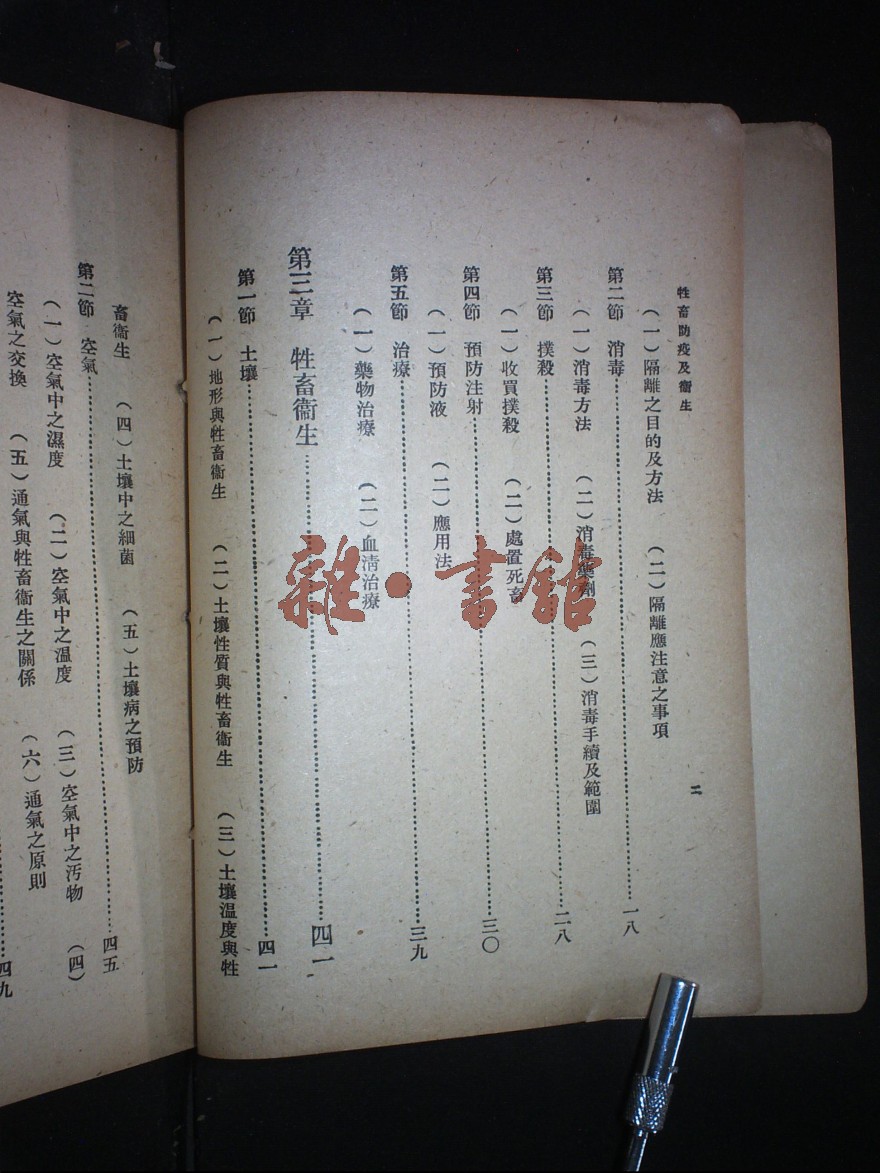 牲畜防疫及衞生
二
（一）隔離之目的及方法 （二）隔離應注意之事項
第二節 消毒……一八
（一）消毒方法 （二）消毒藥劑 （三）消毒手續及範圍
第三節 撲殺……二八
（一）收買撲殺 （二）處置死畜
第四節 預防注射……三〇
（一）預防液 （二）應用法
第五節 治療……三九
（一）藥物治療 （二）血淸治療
第三章 牲畜衞生……四一
第一節 土壤……四一
（一）地形與牲畜衞生 （二）土壤性質與牲畜衞生 （三）土壤溫度與牲
畜衞生 （四）土壤中之細菌 （五）土壤病之預防
第二節 空氣……四五
（一）空氣中之濕度 （二）空氣中之溫度 （三）空氣中之汚物 （四）
空氣之交換 （五）通氣與牲畜衞生之關係 （六）通氣之原則
……四九
雜·書館